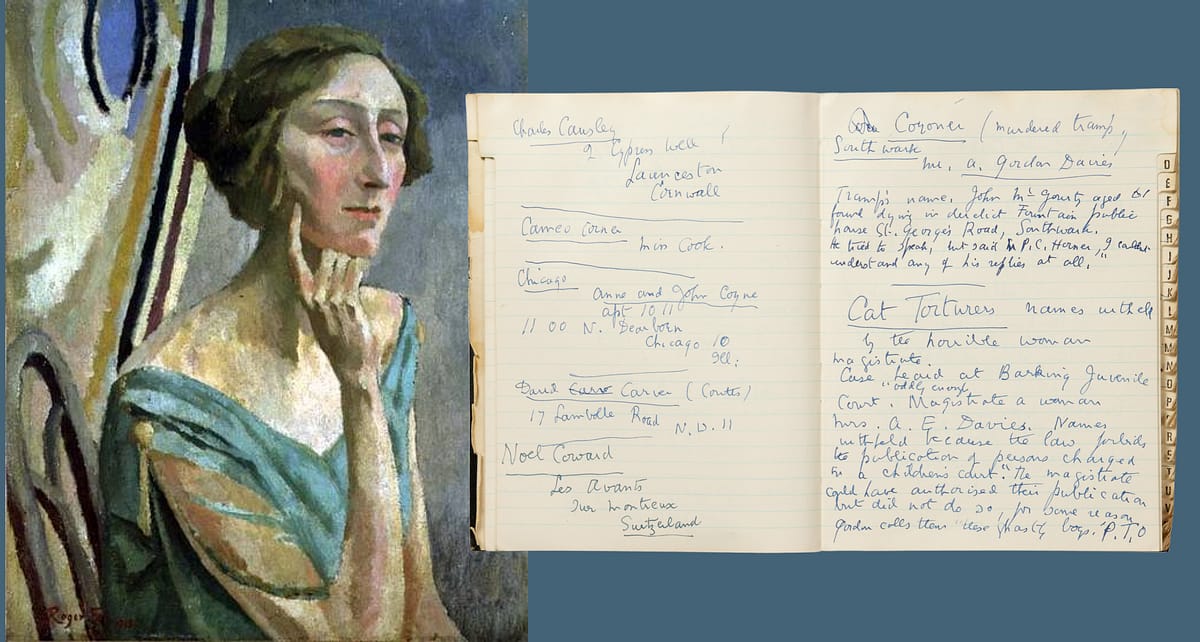 Roger Fry
Charles Causley
2 Cypress Well
Launceston
Cornwall
Cameo Corner
Miss Cook.
Chicago
Anne and John Coyne
apt 1011
1100 N. Dearborn
Chicago 10
Ill:
David Carver (Coutts)
17 Lambolle Road
N.W.11
Noel Coward
Les Avants
Sur Montreux
Switzerland
Coroner (murdered tramp,
Southwark
Mr. A. Gordon Davies
Tramp's name, John McGourty aged 61
found dying in derelict Fountain public
house St. George's Road, Southwark.
He tried to speak, but said P.C. Horner, "I couldn't
understand any of his replies at all."
Cat Torturers names withheld
by the horrible woman
magistrate.
Case heard at Barking Juvenile
"oddly enough
Court. Magistrate a woman
Mrs. A. E. Davies. Names
withheld because the law forbids
the publication of persons charged
in a children's court. "The magistrate
could have authorised their publication
but did not do so, for some reason"
Gordon calls them "these ghastly boys." P.T.O
D
E
F
G
H
I
J
K
L
M
N
O
P
R
S
T
U
V